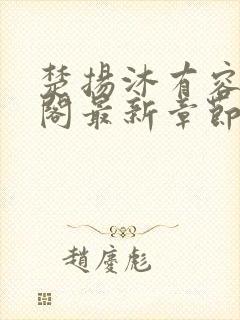 楚揚沐有容
閣最新章節
趙慶彪